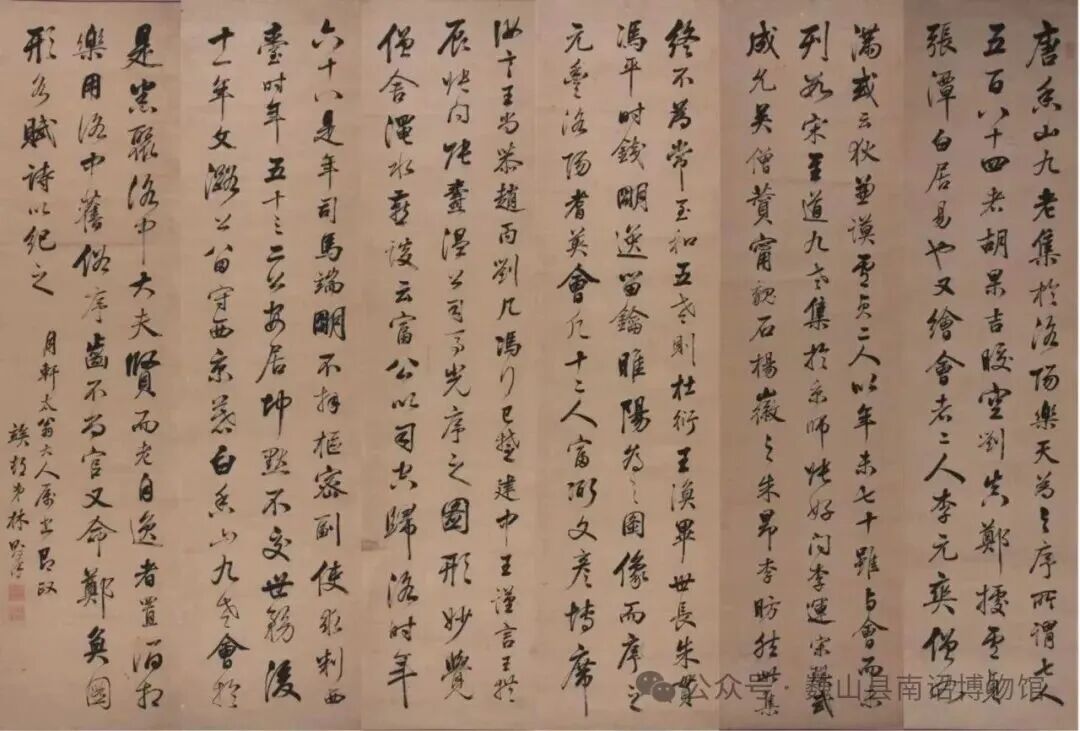 唐香山九老集於洛陽樂天為之序所謂七人
五百八十四者胡杲吉皎劉真鄭據盧貞
張渾白居易也又繪會者二人李元爽僧如
滿或云狄兼謨盧貞二人以年未七十雖與會而不
列焉宋至道九老集於京師張好問李運宋琪武
成允吳僧贊寧魏石楊徽之朱昂李昉然此集
終不為常至和五老則杜衍王渙畢世長朱貫
馮平時錢明逸留鑰睢陽為之圖像而序之
元豐洛陽耆英會凡十二人富弼文彥博席
汝言王尚恭趙丙劉几馮行己楚建中王謹言王拱
辰張問張燾溫公司馬光序之圖形妙覺
僧舍澠水燕談云富公以司空歸洛時年
六十八是年司馬端明不拜樞密副使求判西
臺時年五十三二公安居坤默不交世務後
十一年文潞公留守西京慕白香山九老會於
是悉聚洛中大夫賢而老自逸者置酒相
樂用洛中舊俗序齒不尚官又命鄭奐圖
形各賦詩以紀之
月軒太翁大人屬書即政
弟林
公众号·巍山县南诏博物馆